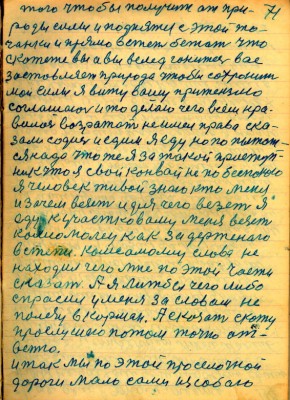 того чтобы получить от при-
роды силы и поднятся с этой по-
чанки и прямо встеп бежат что
скажете вы а вы вслед гонитесь вас
заставляет природа чтобы сохранит
мои силы я вижу вашу притензию
соглашаюс и то делаю чего всем нра-
вился возратат не имея права ска-
зали содис и едим я еду но по
я надо что же я за такой приступ-
ник что я свой конвой не по беспокою
я человек живой знаю кто меня
и зачем везет и для чего везет я
еду к участковому меня везет
комсомолец как задержанаго
встепи. комсомолец слова не
находил чего мне по этой части
сказат. А я лиш бы чего либо
спрасил у меня за словам не
полезу в корман. А сказат скажу
прослушаю потом точно от-
вечю.
итак мы по этой проселочной
дороги мало сами из собою